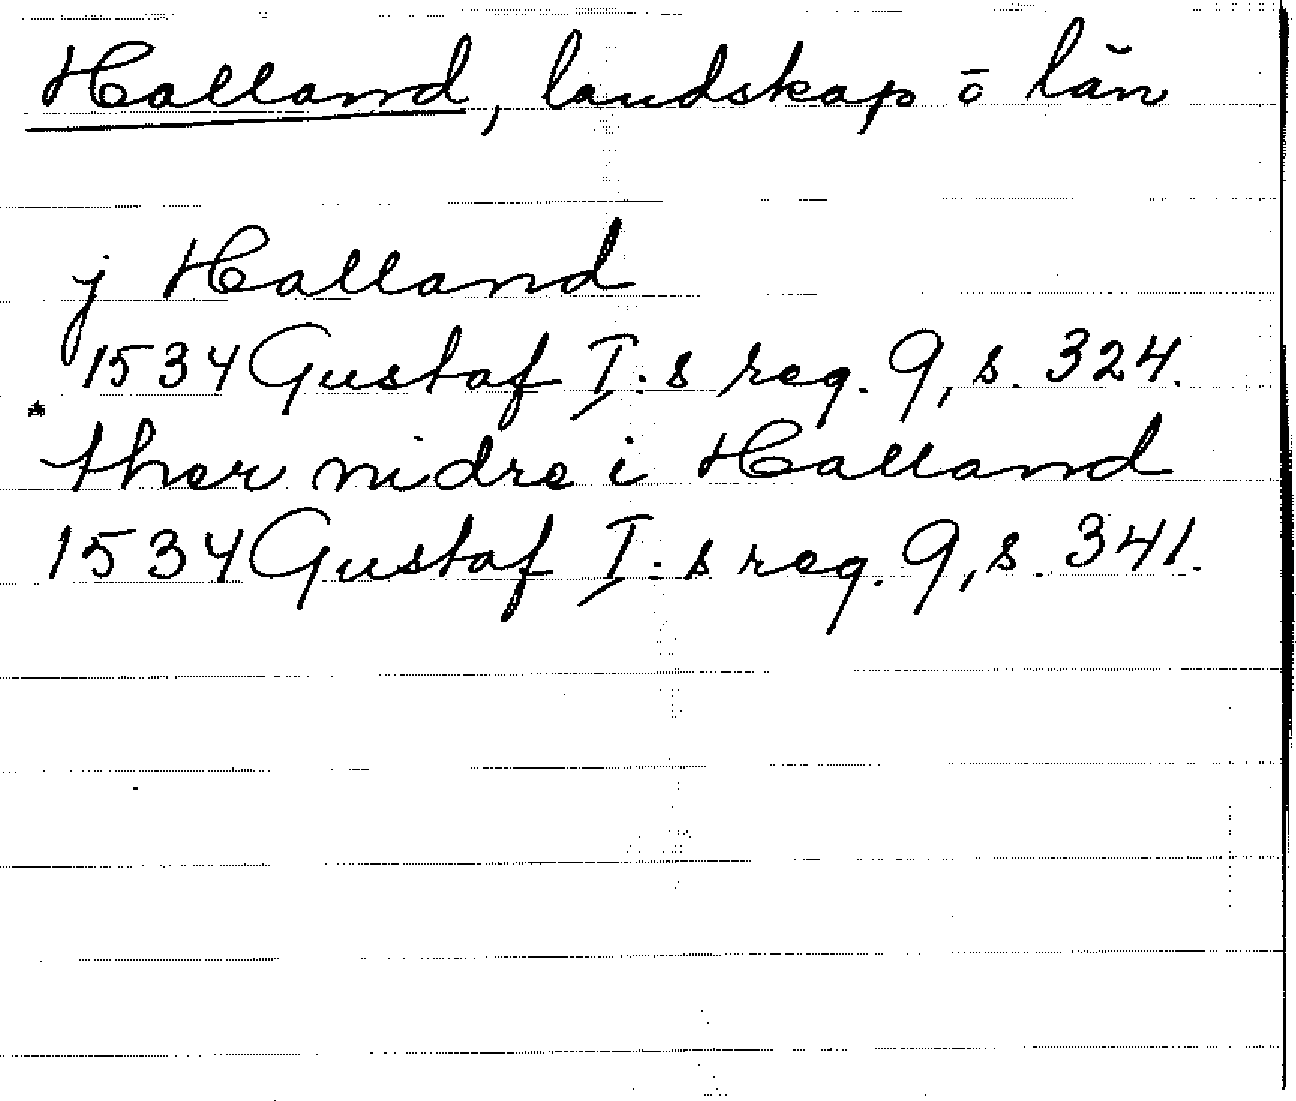 Halland, landskap ō län
j Halland
1534 Gustaf I:s reg. 9, s. 324.
ther nidre i Halland
1534 Gustaf I:s reg. 9, s. 341.